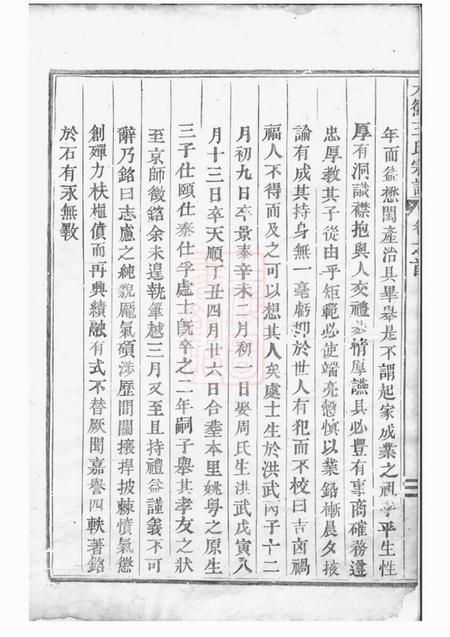 年而益懋閨產治具畢舉是不謂起家成業之祖乎平生性
厚有洞識襟抱與人交禮恭情厚讌具必豐有事商確務遵
忠厚教其子從由乎矩範必使端亮慤慎以業鉛槧晨夕掖
論有成其持身無一毫虧卹於世人有犯而不校曰吉凶禍
福人不得而及之可以想其人矣處士生於洪武丙子十二
月初九日卒景泰辛未二月初一日娶周氏生洪武戊寅八
月十三日卒天順丁丑四月廿六日合塟本里姚㘭之原生
三子仕頤仕泰仕孚處士旣卒之二年嗣子舉其孝友之狀
至京師徵銘余未遑執筆越三月又至且持禮益謹義不可
辭乃銘曰志慮之純貌厖氣碩涉歷間關攘捍披棘憤氣懲
創殫力扶植僨而再興績融有式不替厥聞嘉譽四軼著銘
於石有永無斁
王氏宗譜
卷之首